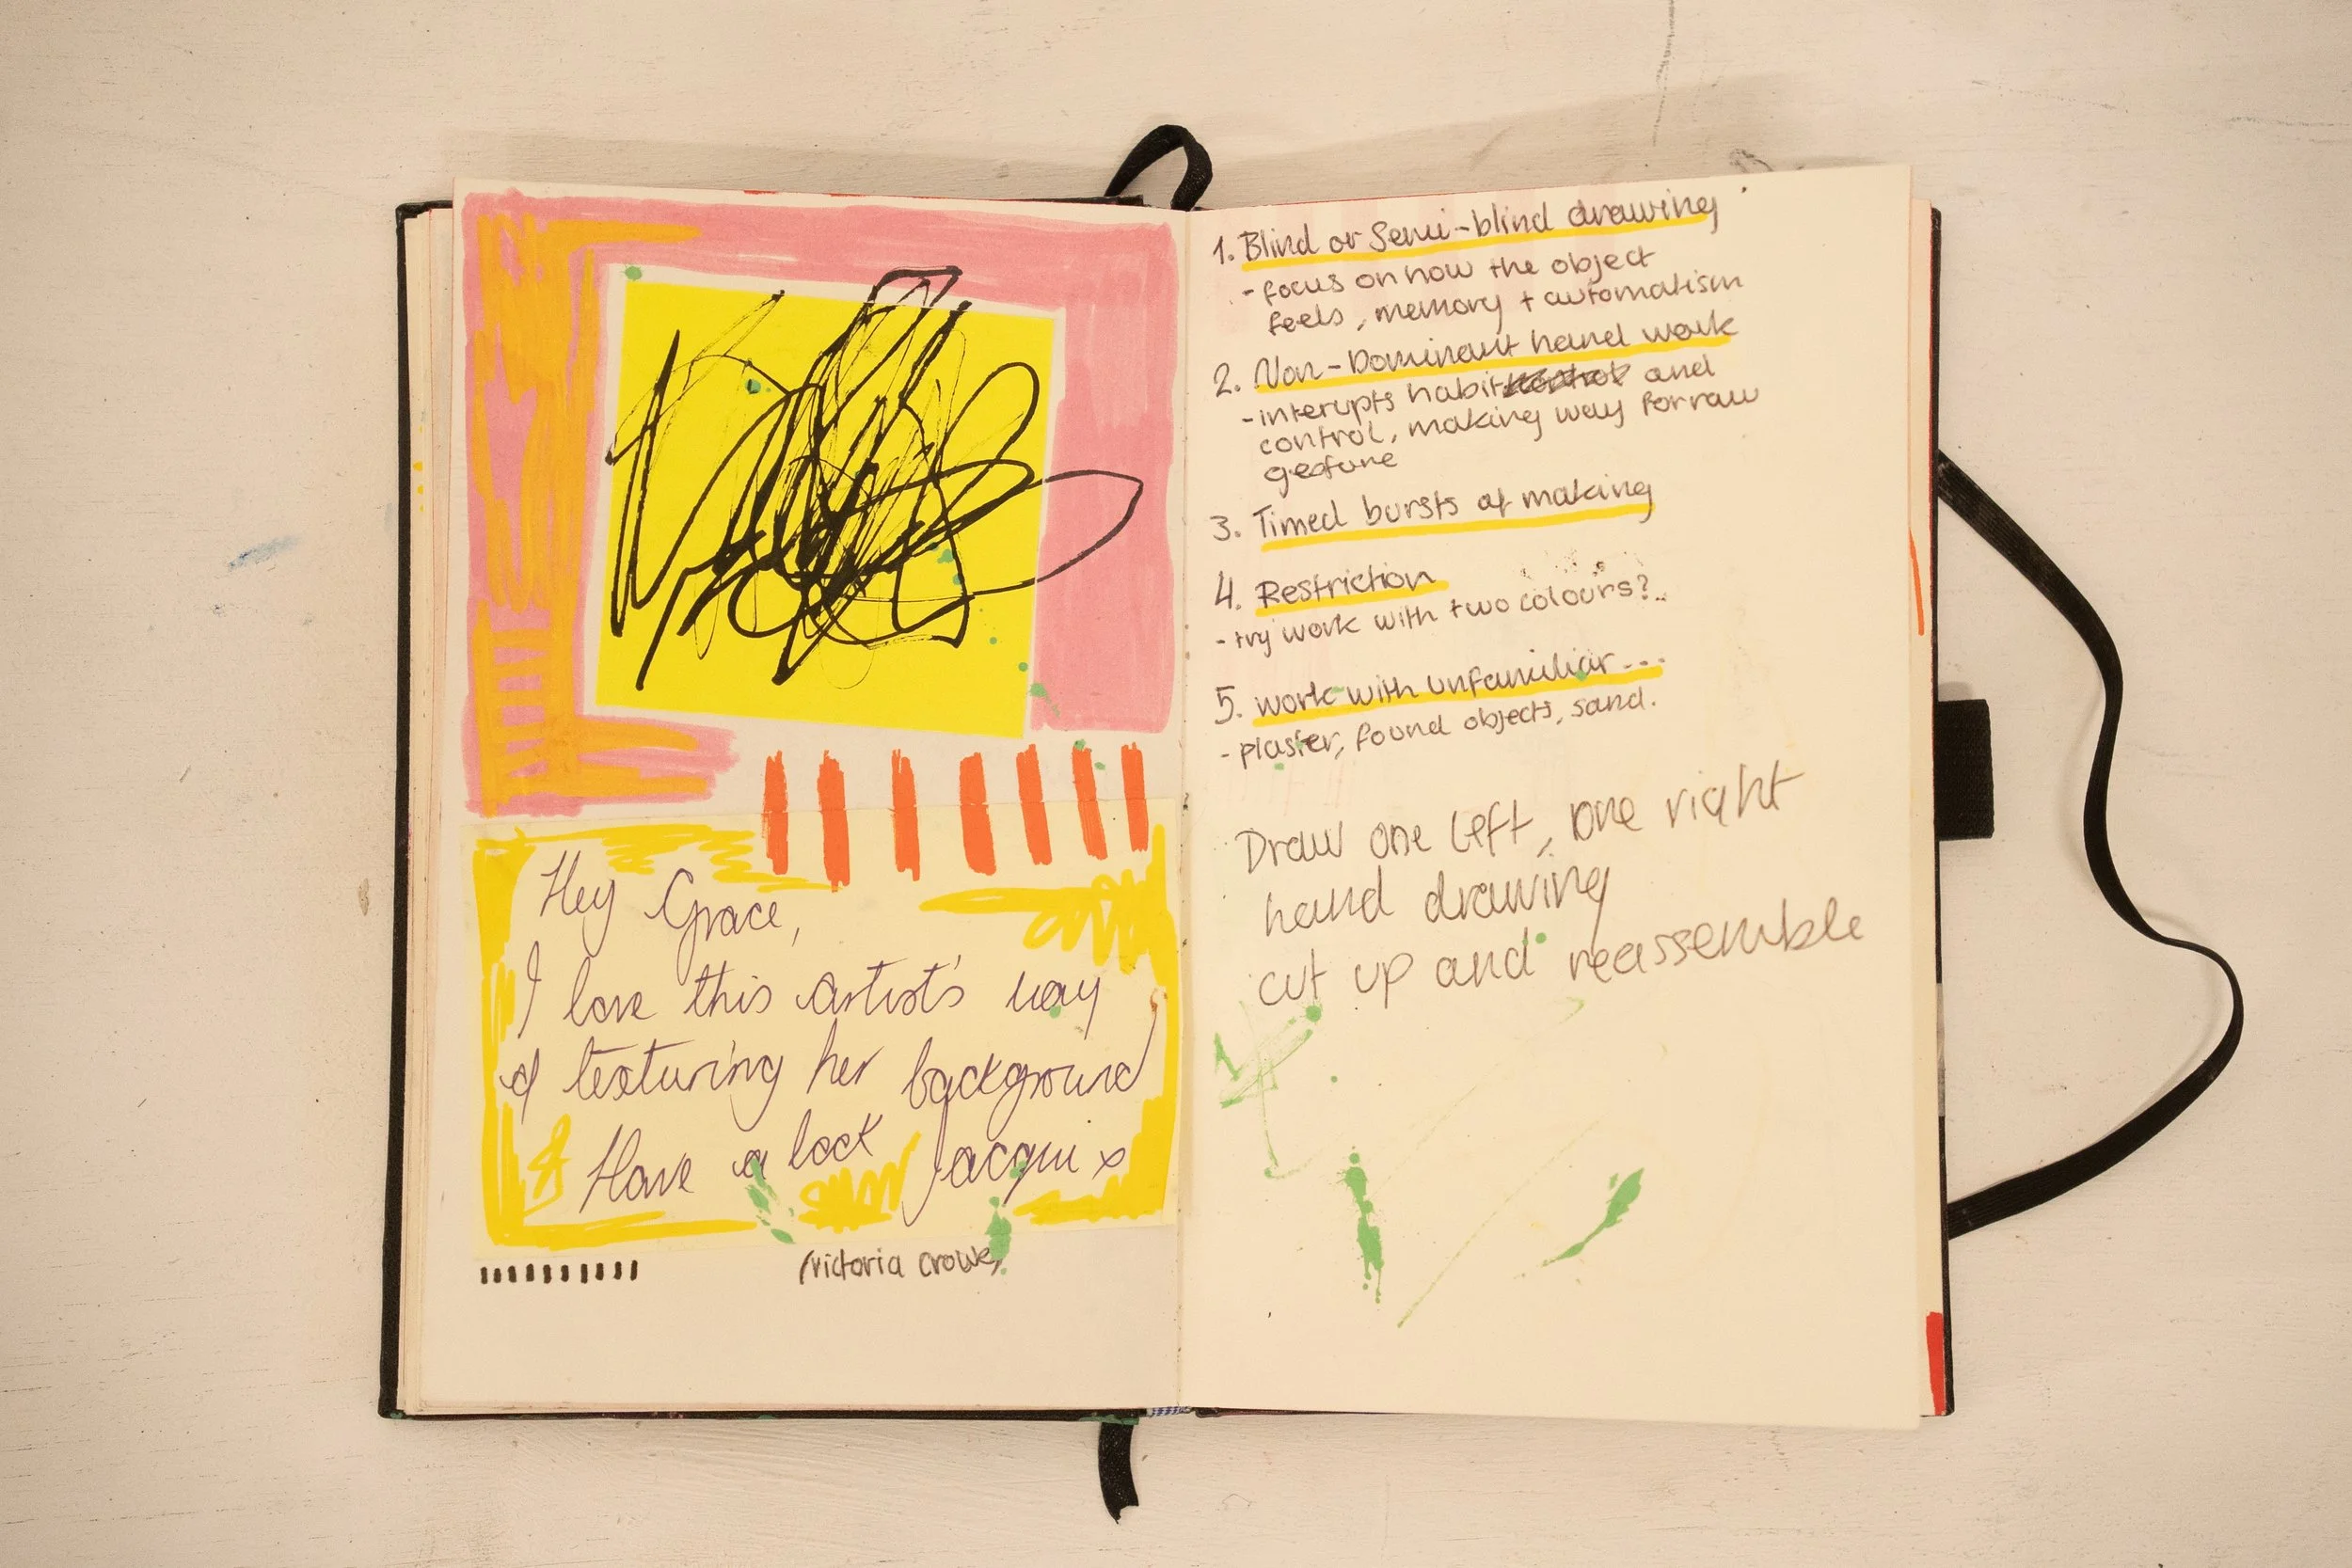 Hey Grace,
I love this artist's way
of texturing her background
Have a look Jacqui x
(victoria crowe)
1. Blind or Semi-blind drawing
- focus on how the object
feels, memory + automatism
2. Non-Dominant hand work
- interupts habit and
control, making way for raw
gesture
3. Timed bursts of making
4. Restriction
- try work with two colours?..
5. work with unfamiliar...
- plaster, found objects, sand.
Draw one left, one right
hand drawing
cut up and reassemble